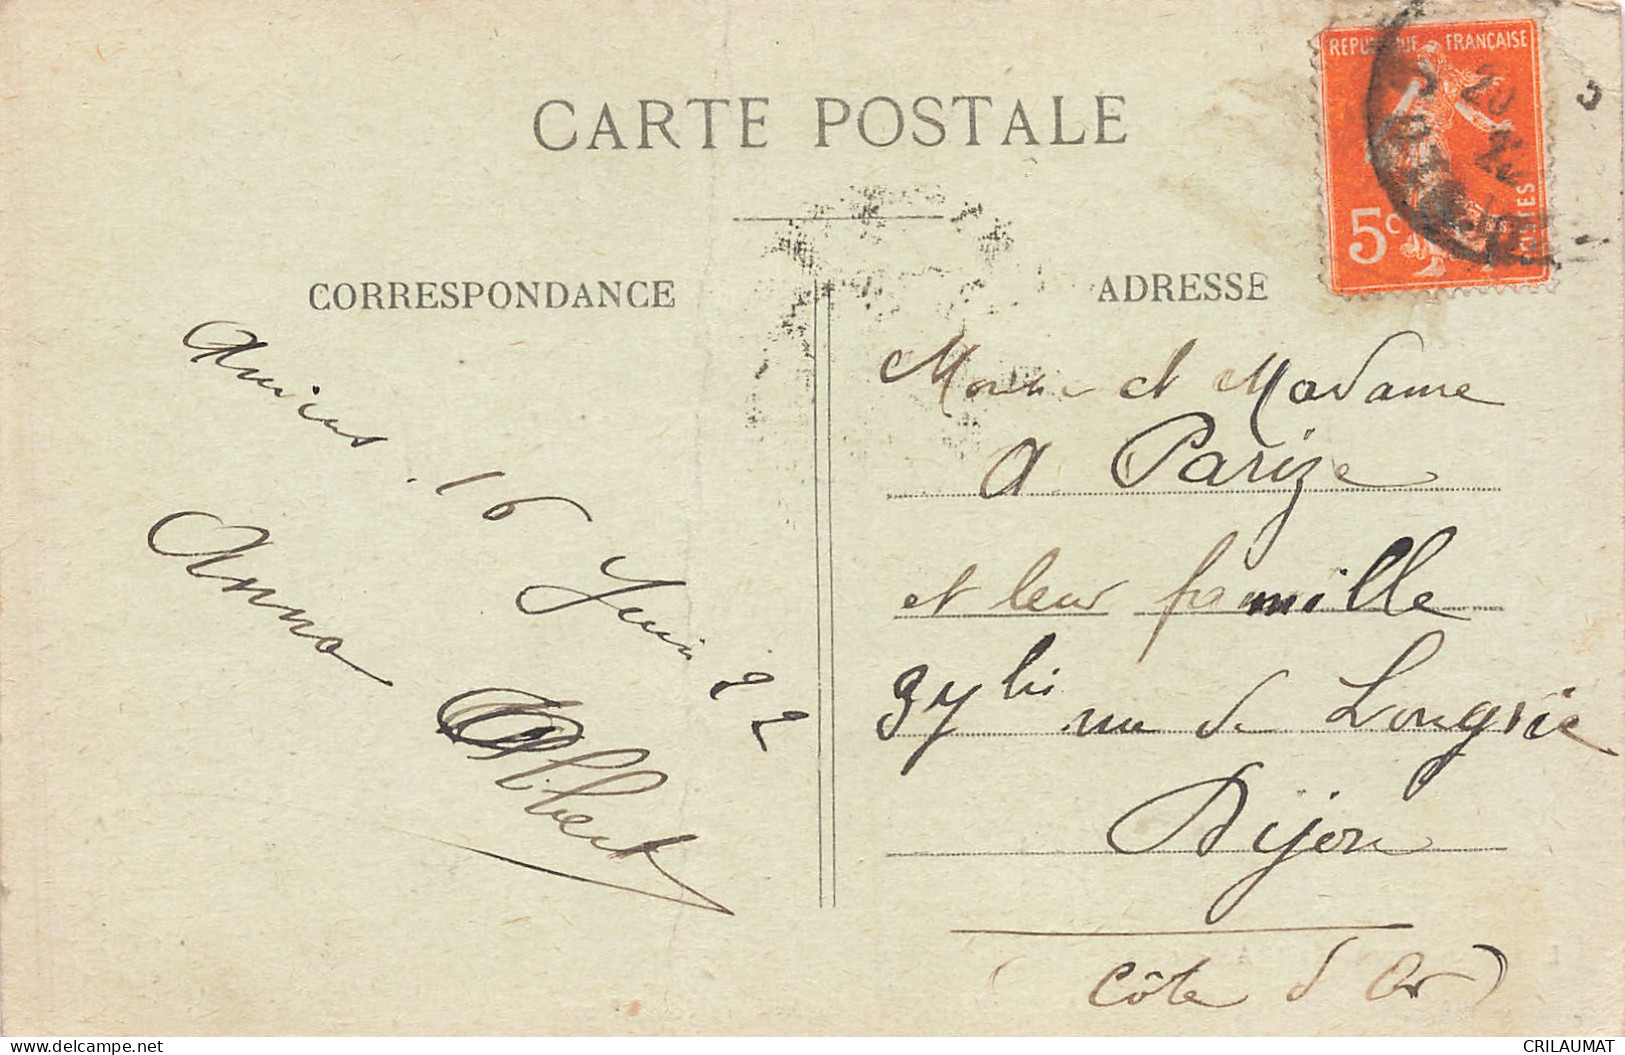 CARTE POSTALE
CORRESPONDANCE
ADRESSE
REPUBLIQUE FRANÇAISE
5c
POSTES
Amiens. 16 Juin 22
Anna
Albert
et Madame
A Parize
et leur famille
bis rue de Longvic
Dijon
(Côte d'Or)
CRILAUMAT